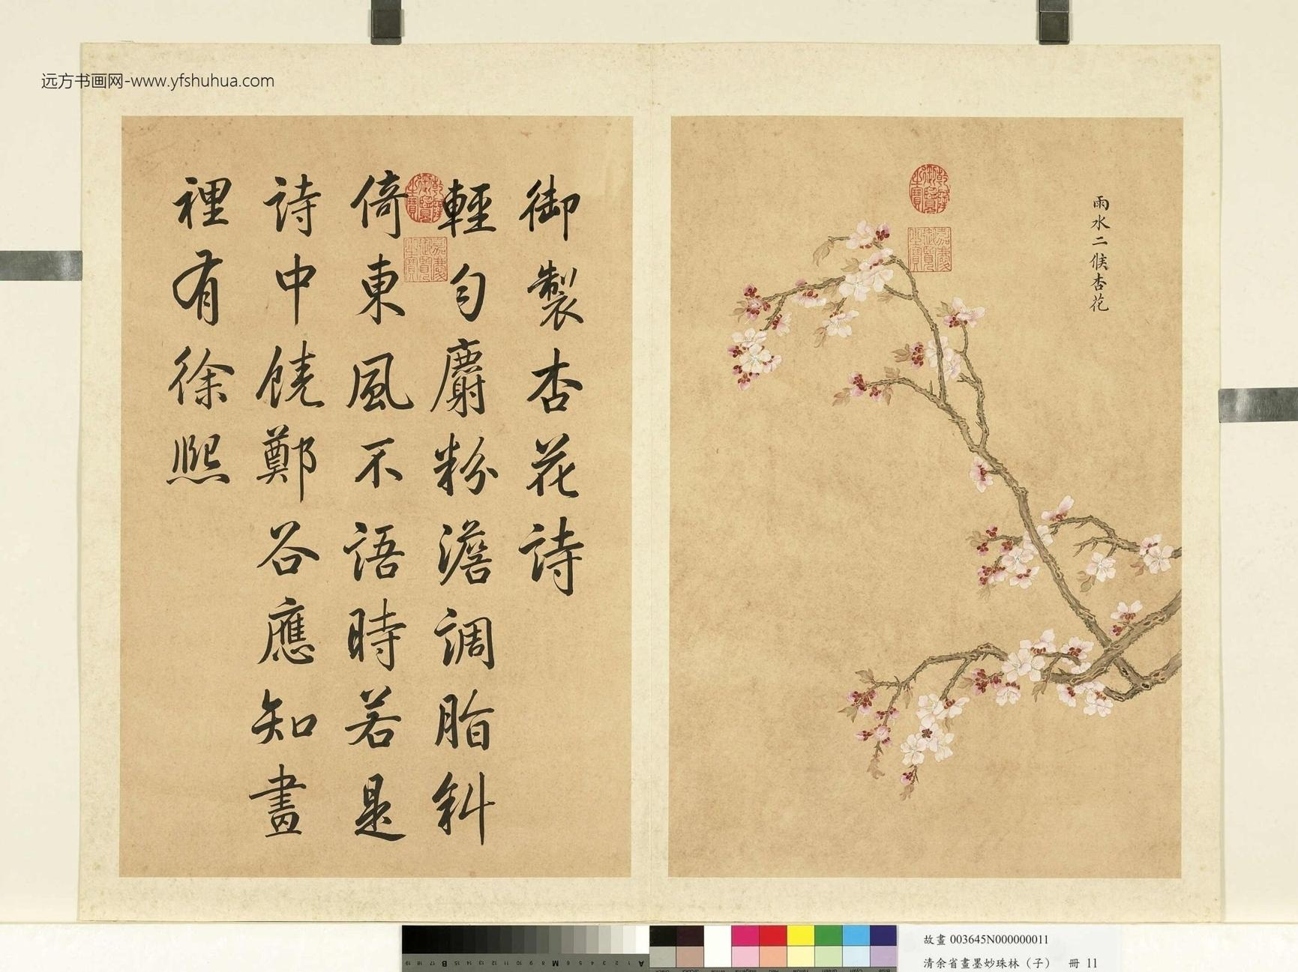 远方书画网-www.yfshuhua.com
雨水二候杏花
御製杏花詩
輕勻麝粉澹調脂斜
倚東風不語時若是
詩中饒鄭谷應知畫
裡有徐熙
故畫 003645N000000011
清余省畫墨妙珠林（子） 冊 11